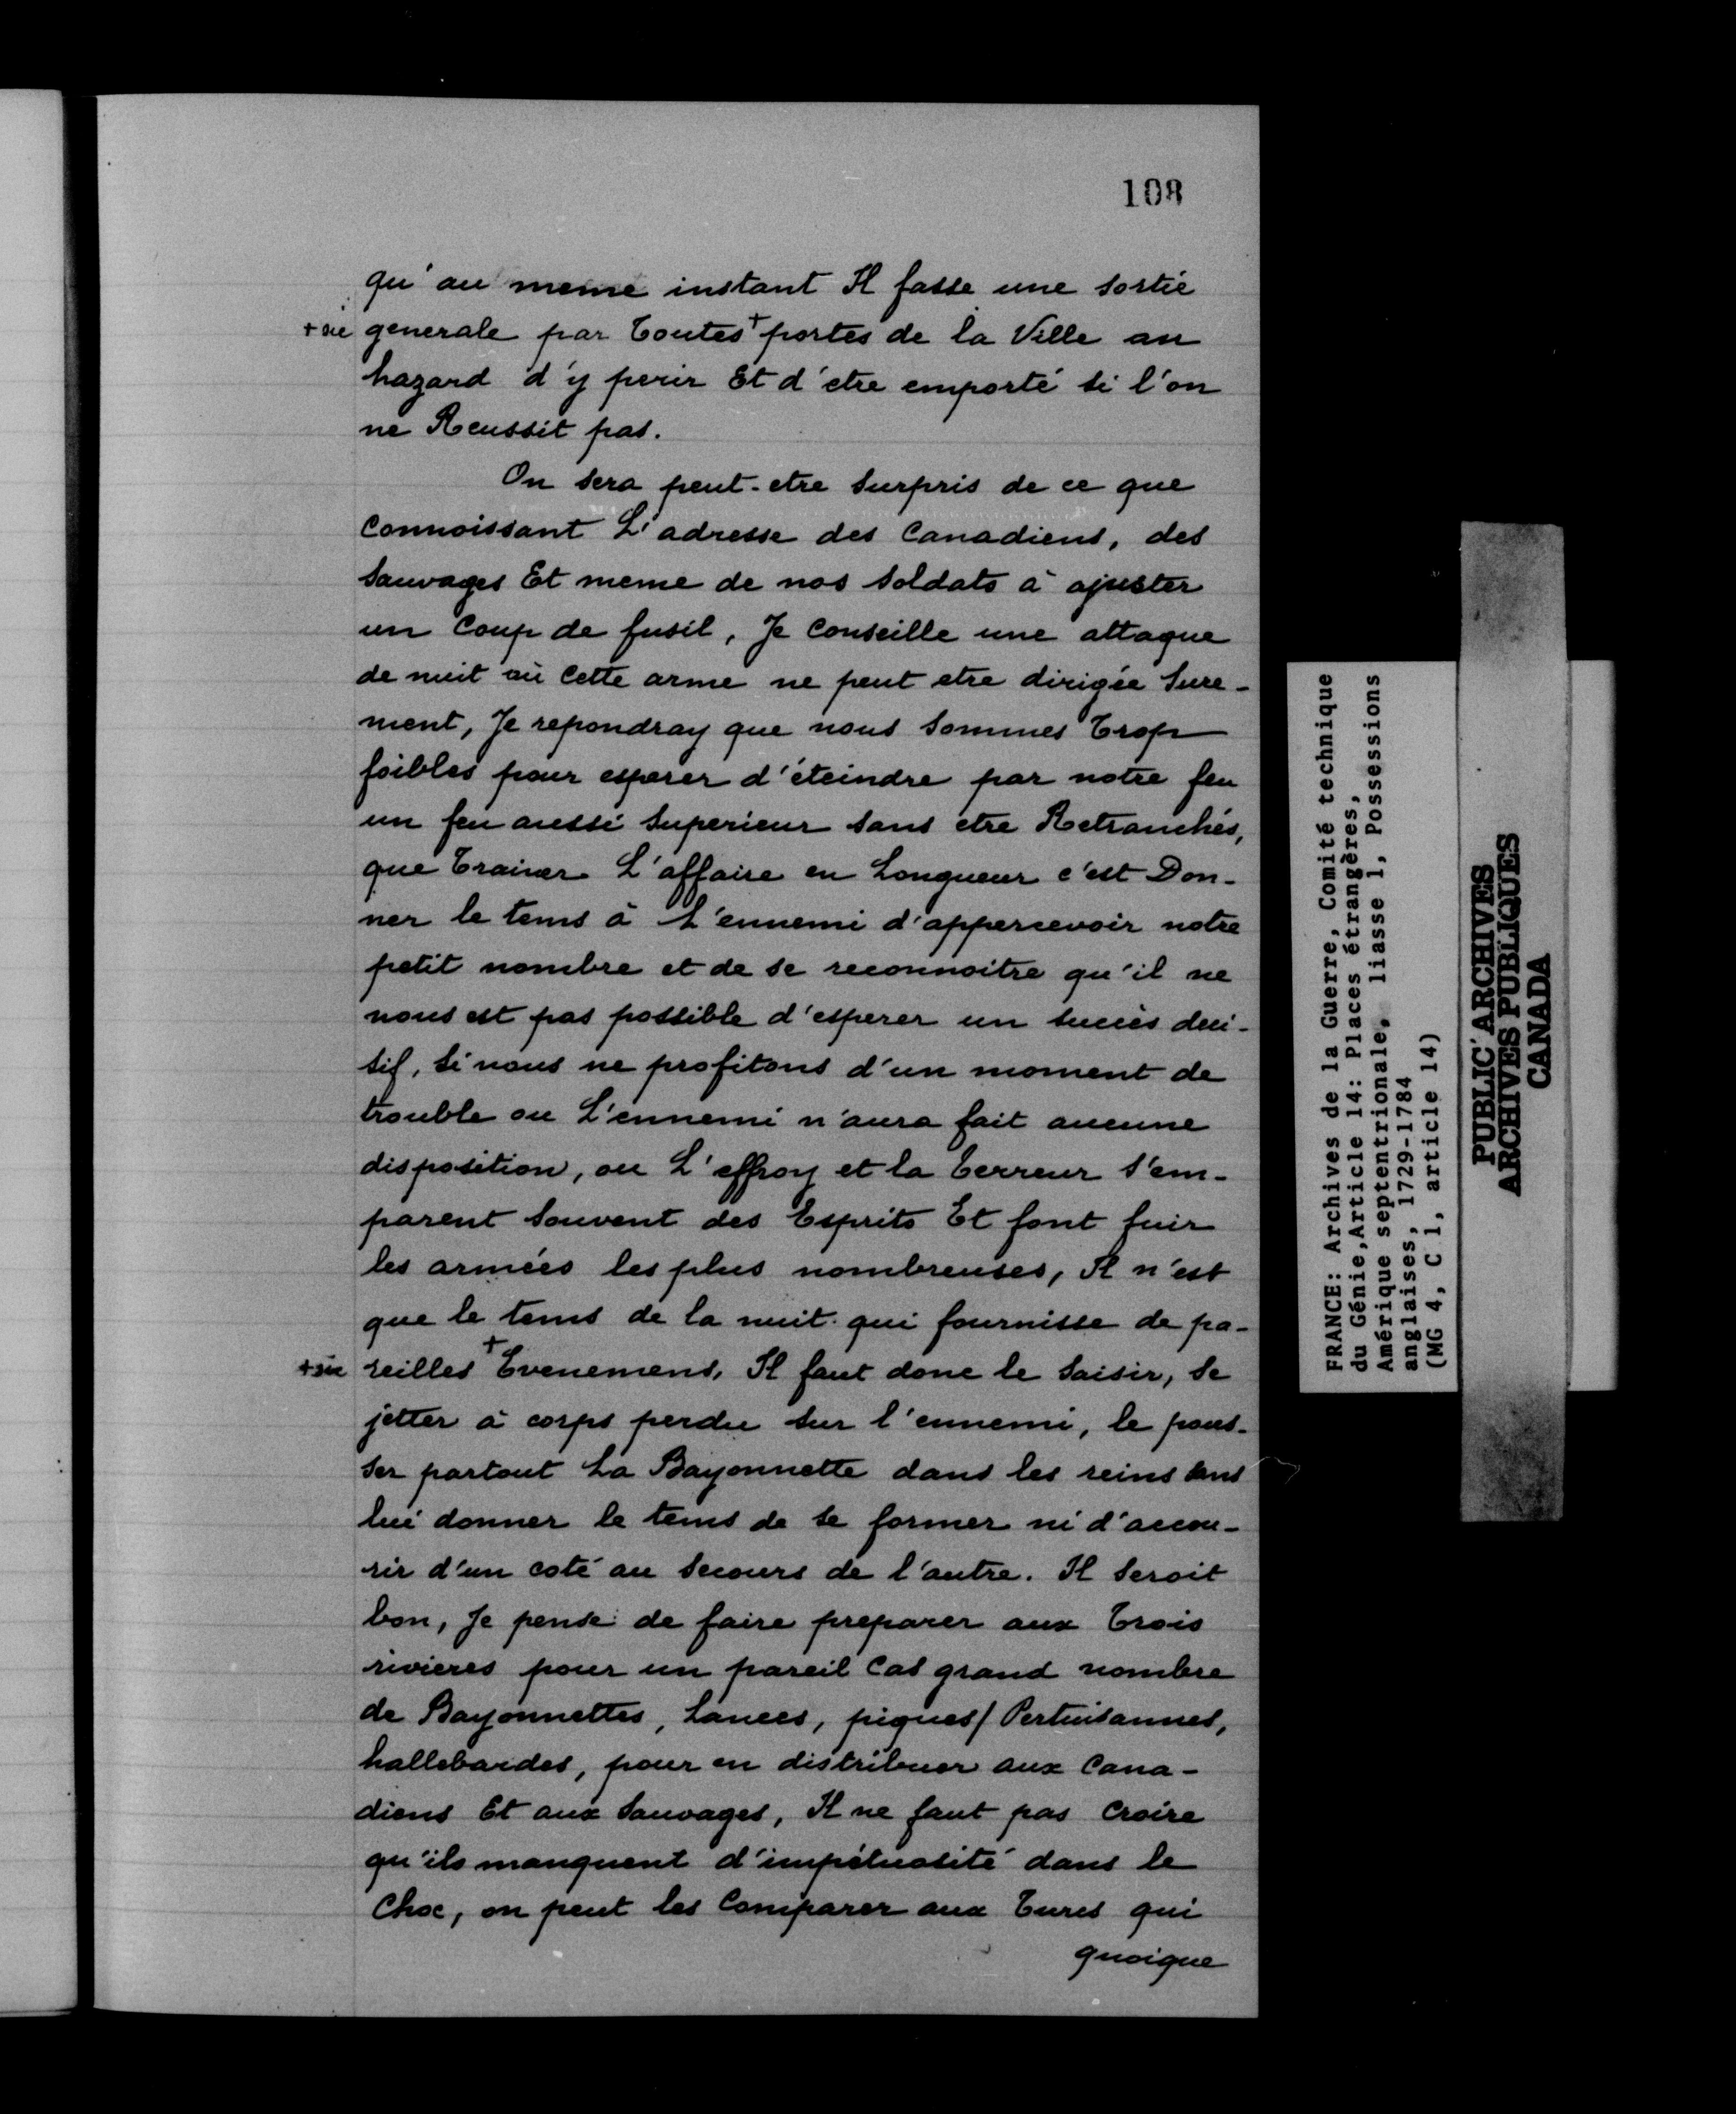 108
qu'au meme instant Il fasse une sortie
+ sic generale par Toutes + portes de la Ville au
hazard d'y perir Et d'etre emporté si l'on
ne Reussit pas.
On sera peut-etre surpris de ce que
Connoissant L'adresse des Canadiens, des
Sauvages Et meme de nos soldats à ajuster
un Coup de fusil, Je Conseille une attaque
de nuit où Cette arme ne peut etre dirigée Sure-
ment, Je repondray que nous Sommes Trop
foibles pour esperer d'éteindre par notre feu
un feu aussi Superieur sans etre Retranchés,
que Trainer L'affaire en Longueur c'est Don-
ner le tems à L'ennemi d'appercevoir notre
petit nombre et de se reconnoitre qu'il ne
nous est pas possible d'esperer un succès deci-
sif, Si nous ne profitons d'un moment de
trouble ou L'ennemi n'aura fait aucune
disposition, ou L'effroy et la Terreur s'em-
parent Souvent des Esprits Et font fuir
les armées les plus nombreuses, Il n'est
que le tems de la nuit qui fournisse de pa-
+ sic reilles + Evenemens, Il faut donc le Saisir, Se
jetter à corps perdu sur l'ennemi, le pous-
ser partout La Bayonnette dans les reins sans
lui donner le tems de se former ni d'accou-
rir d'un coté au Secours de l'autre. Il Seroit
bon, Je pense de faire preparer aux Trois
rivieres pour un pareil Cas grand nombre
de Bayonnettes, Lances, piques/ Pertuisannes,
hallebardes, pour en distribuer aux Cana-
diens Et aux Sauvages, Il ne faut pas Croire
qu'ils manquent d'impétuosité dans le
Choc, on peut les Comparer aux Turcs qui
quoique
FRANCE: Archives de la Guerre, Comité technique
du Génie, Article 14: Places étrangères,
Amérique septentrionale, liasse 1, Possessions
anglaises, 1729-1784
(MG 4, C 1, article 14)
PUBLIC ARCHIVES
ARCHIVES PUBLIQUES
CANADA